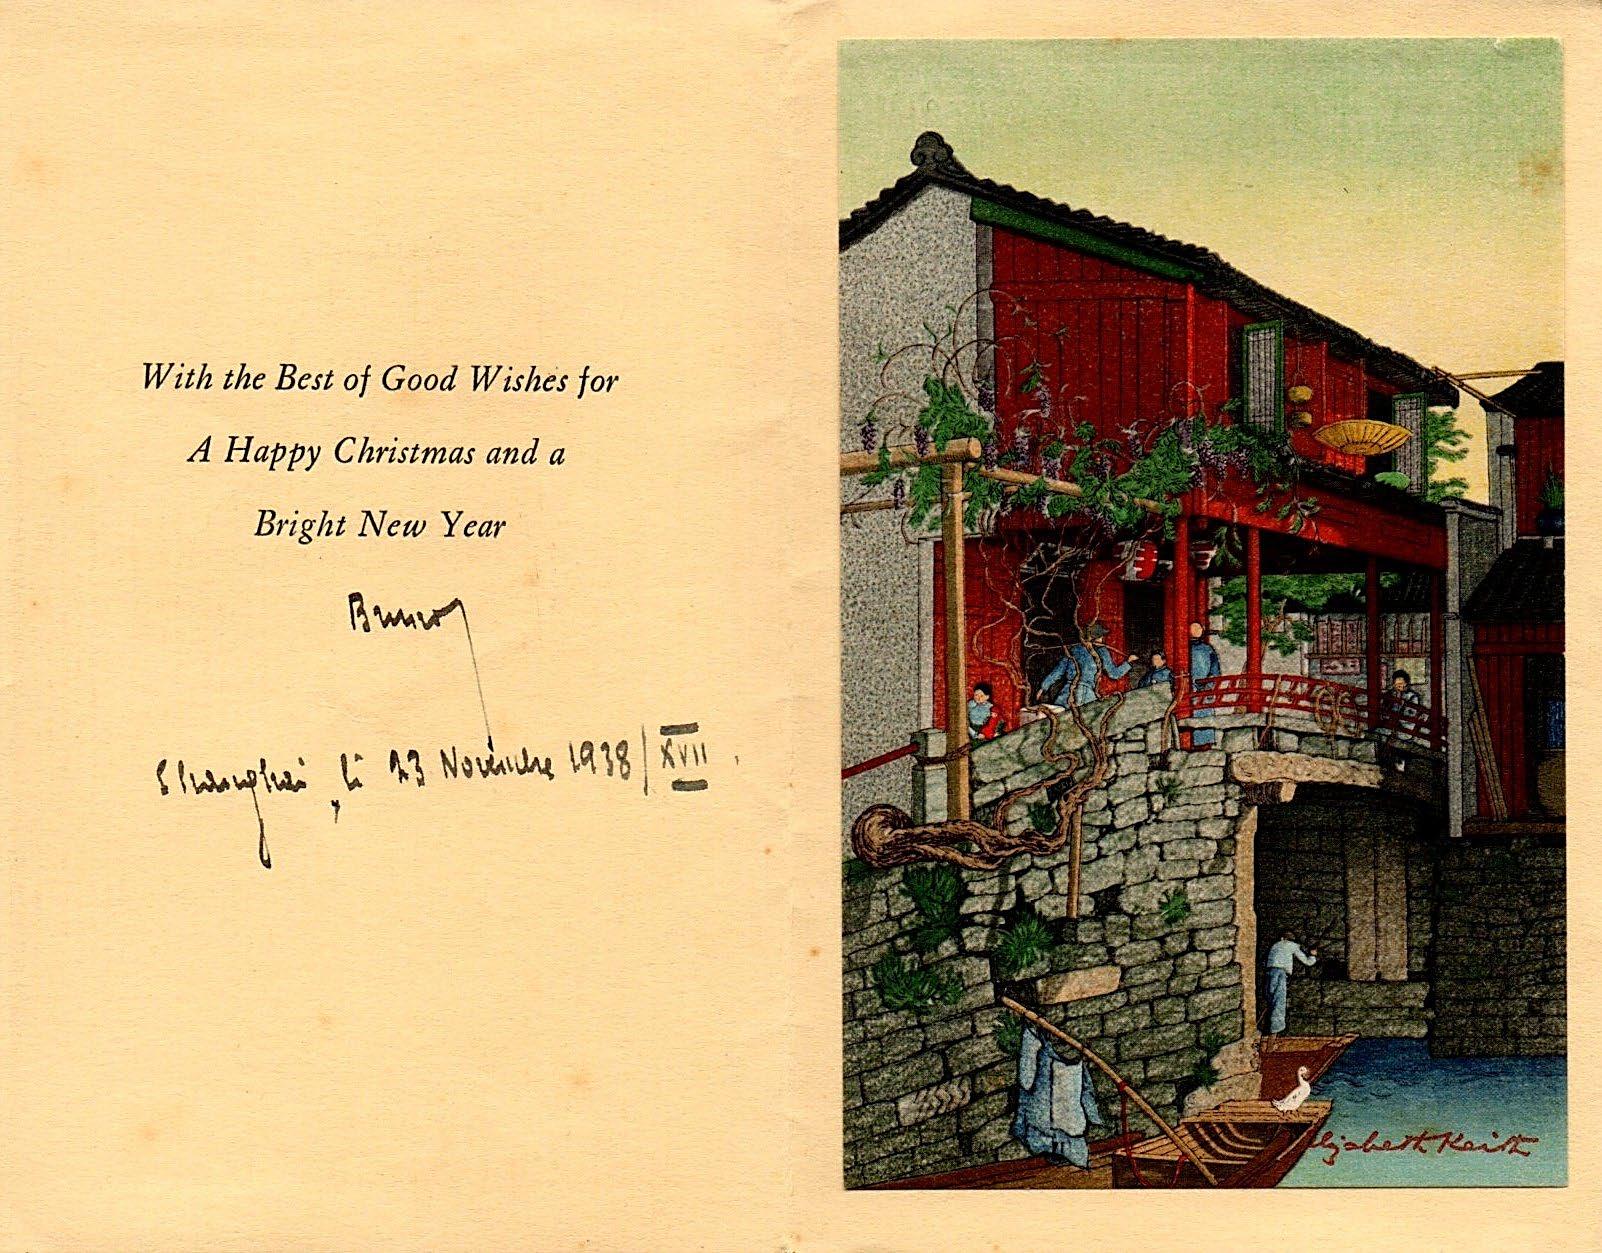 With the Best of Good Wishes for
A Happy Christmas and a
Bright New Year
Bruno
Shanghai, li 23 Novembre 1938/XVII.
Elizabeth Keith